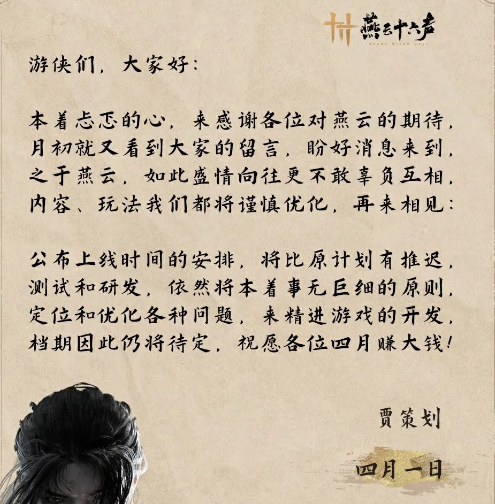 燕云十六声
游侠们，大家好：
本着忐忑的心，来感谢各位对燕云的期待，
月初就又看到大家的留言，盼好消息来到，
之于燕云，如此盛情向往更不敢辜负互相，
内容、玩法我们都将谨慎优化，再来相见：
公布上线时间的安排，将比原计划有推迟，
测试和研发，依然将本着事无巨细的原则，
定位和优化各种问题，来精进游戏的开发，
档期因此仍将待定，祝愿各位四月赚大钱！
贾策划
四月一日